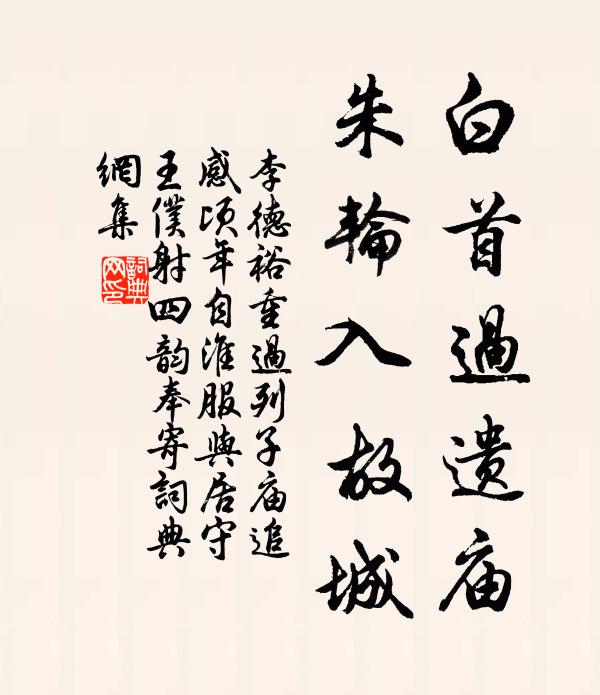 白首過遺庙
朱輪入故城
李德裕重過列子庙追
感頃年自淮服與居守
王僕射四韵奉寄詞典
網集
詞典網印